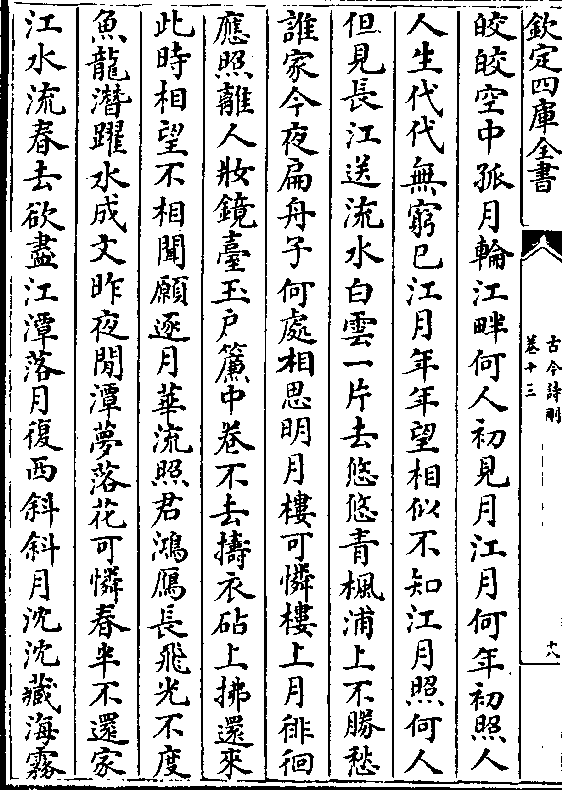 欽定四庫全書
古今詩刪
卷十三
十八
皎皎空中孤月輪江畔何人初見月江月何年初照人
人生代代無窮已江月年年望相似不知江月照何人
但見長江送流水白雲一片去悠悠青楓浦上不勝愁
誰家今夜扁舟子何處相思明月樓可憐樓上月徘徊
應照離人妝鏡臺玉戶簾中卷不去擣衣砧上拂還來
此時相望不相聞願逐月華流照君鴻鴈長飛光不度
魚龍潛躍水成文昨夜閒潭夢落花可憐春半不還家
江水流春去欲盡江潭落月復西斜斜月沈沈藏海霧